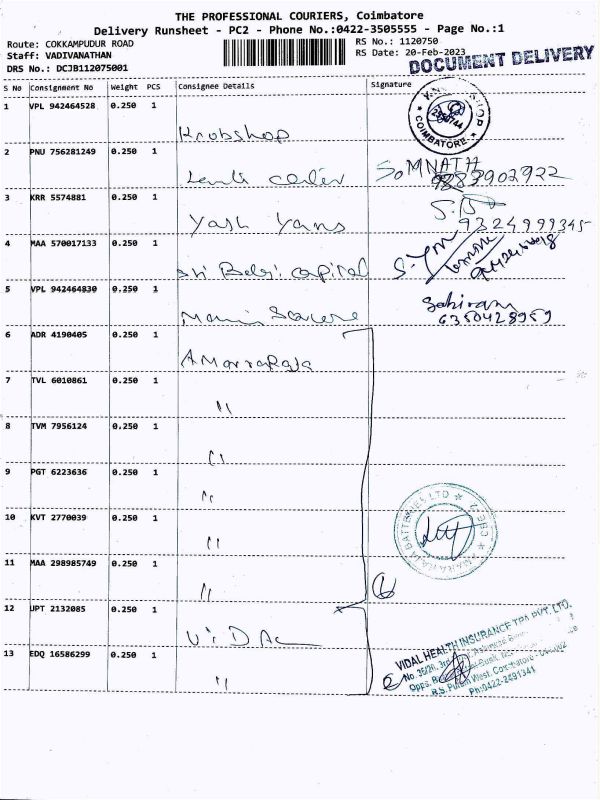 THE PROFESSIONAL COURIERS, Coimbatore
Delivery Runsheet - PC2 - Phone No.:0422-3505555 - Page No.:1
Route: COKKAMPUDUR ROAD
Staff: VADIVANATHAN
DRS No.: DCJB112075001
RS No.: 1120750
RS Date: 20-Feb-2023
DOCUMENT DELIVERY
S No Consignment No Weight PCS Consignee Details Signature
1 VPL 942464528 0.250 1
COIMBATORE
2 PNU 756281249 0.250 1 SOMNATH
3 KRR 5574881 0.250 1 Yash Yans
9324999345
4 MAA 570017133 0.250 1 Sri Balaji capital
5 VPL 942464830 0.250 1 Sahiram
6350428959
6 ADR 4190405 0.250 1 AmarraRaja
7 TVL 6010861 0.250 1 "
8 TVM 7956124 0.250 1 "
9 PGT 6223636 0.250 1 "
10 KVT 2770039 0.250 1 "
11 MAA 298985749 0.250 1 " 6
12 JPT 2132085 0.250 1
13 EDQ 16586299 0.250 1 "
VIDAL HEALTH INSURANCE TPA PVT. LTD.
R.S. Puram West, Coimbatore
Ph:0422-2491341